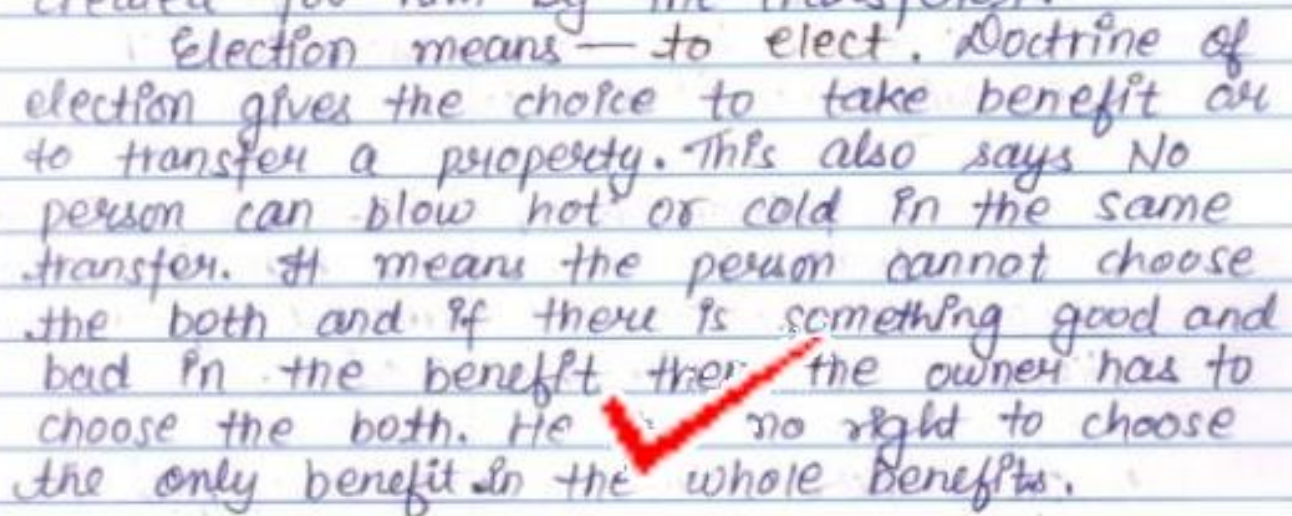 Election means — to elect'. Doctrine of
election gives the choice to take benefit or
to transfer a property. This also says No
person can blow hot or cold in the same
transfer. It means the person cannot choose
the both and if there is something good and
bad in the benefit then the owner has to
choose the both. He no right to choose
the only benefit in the whole benefits.